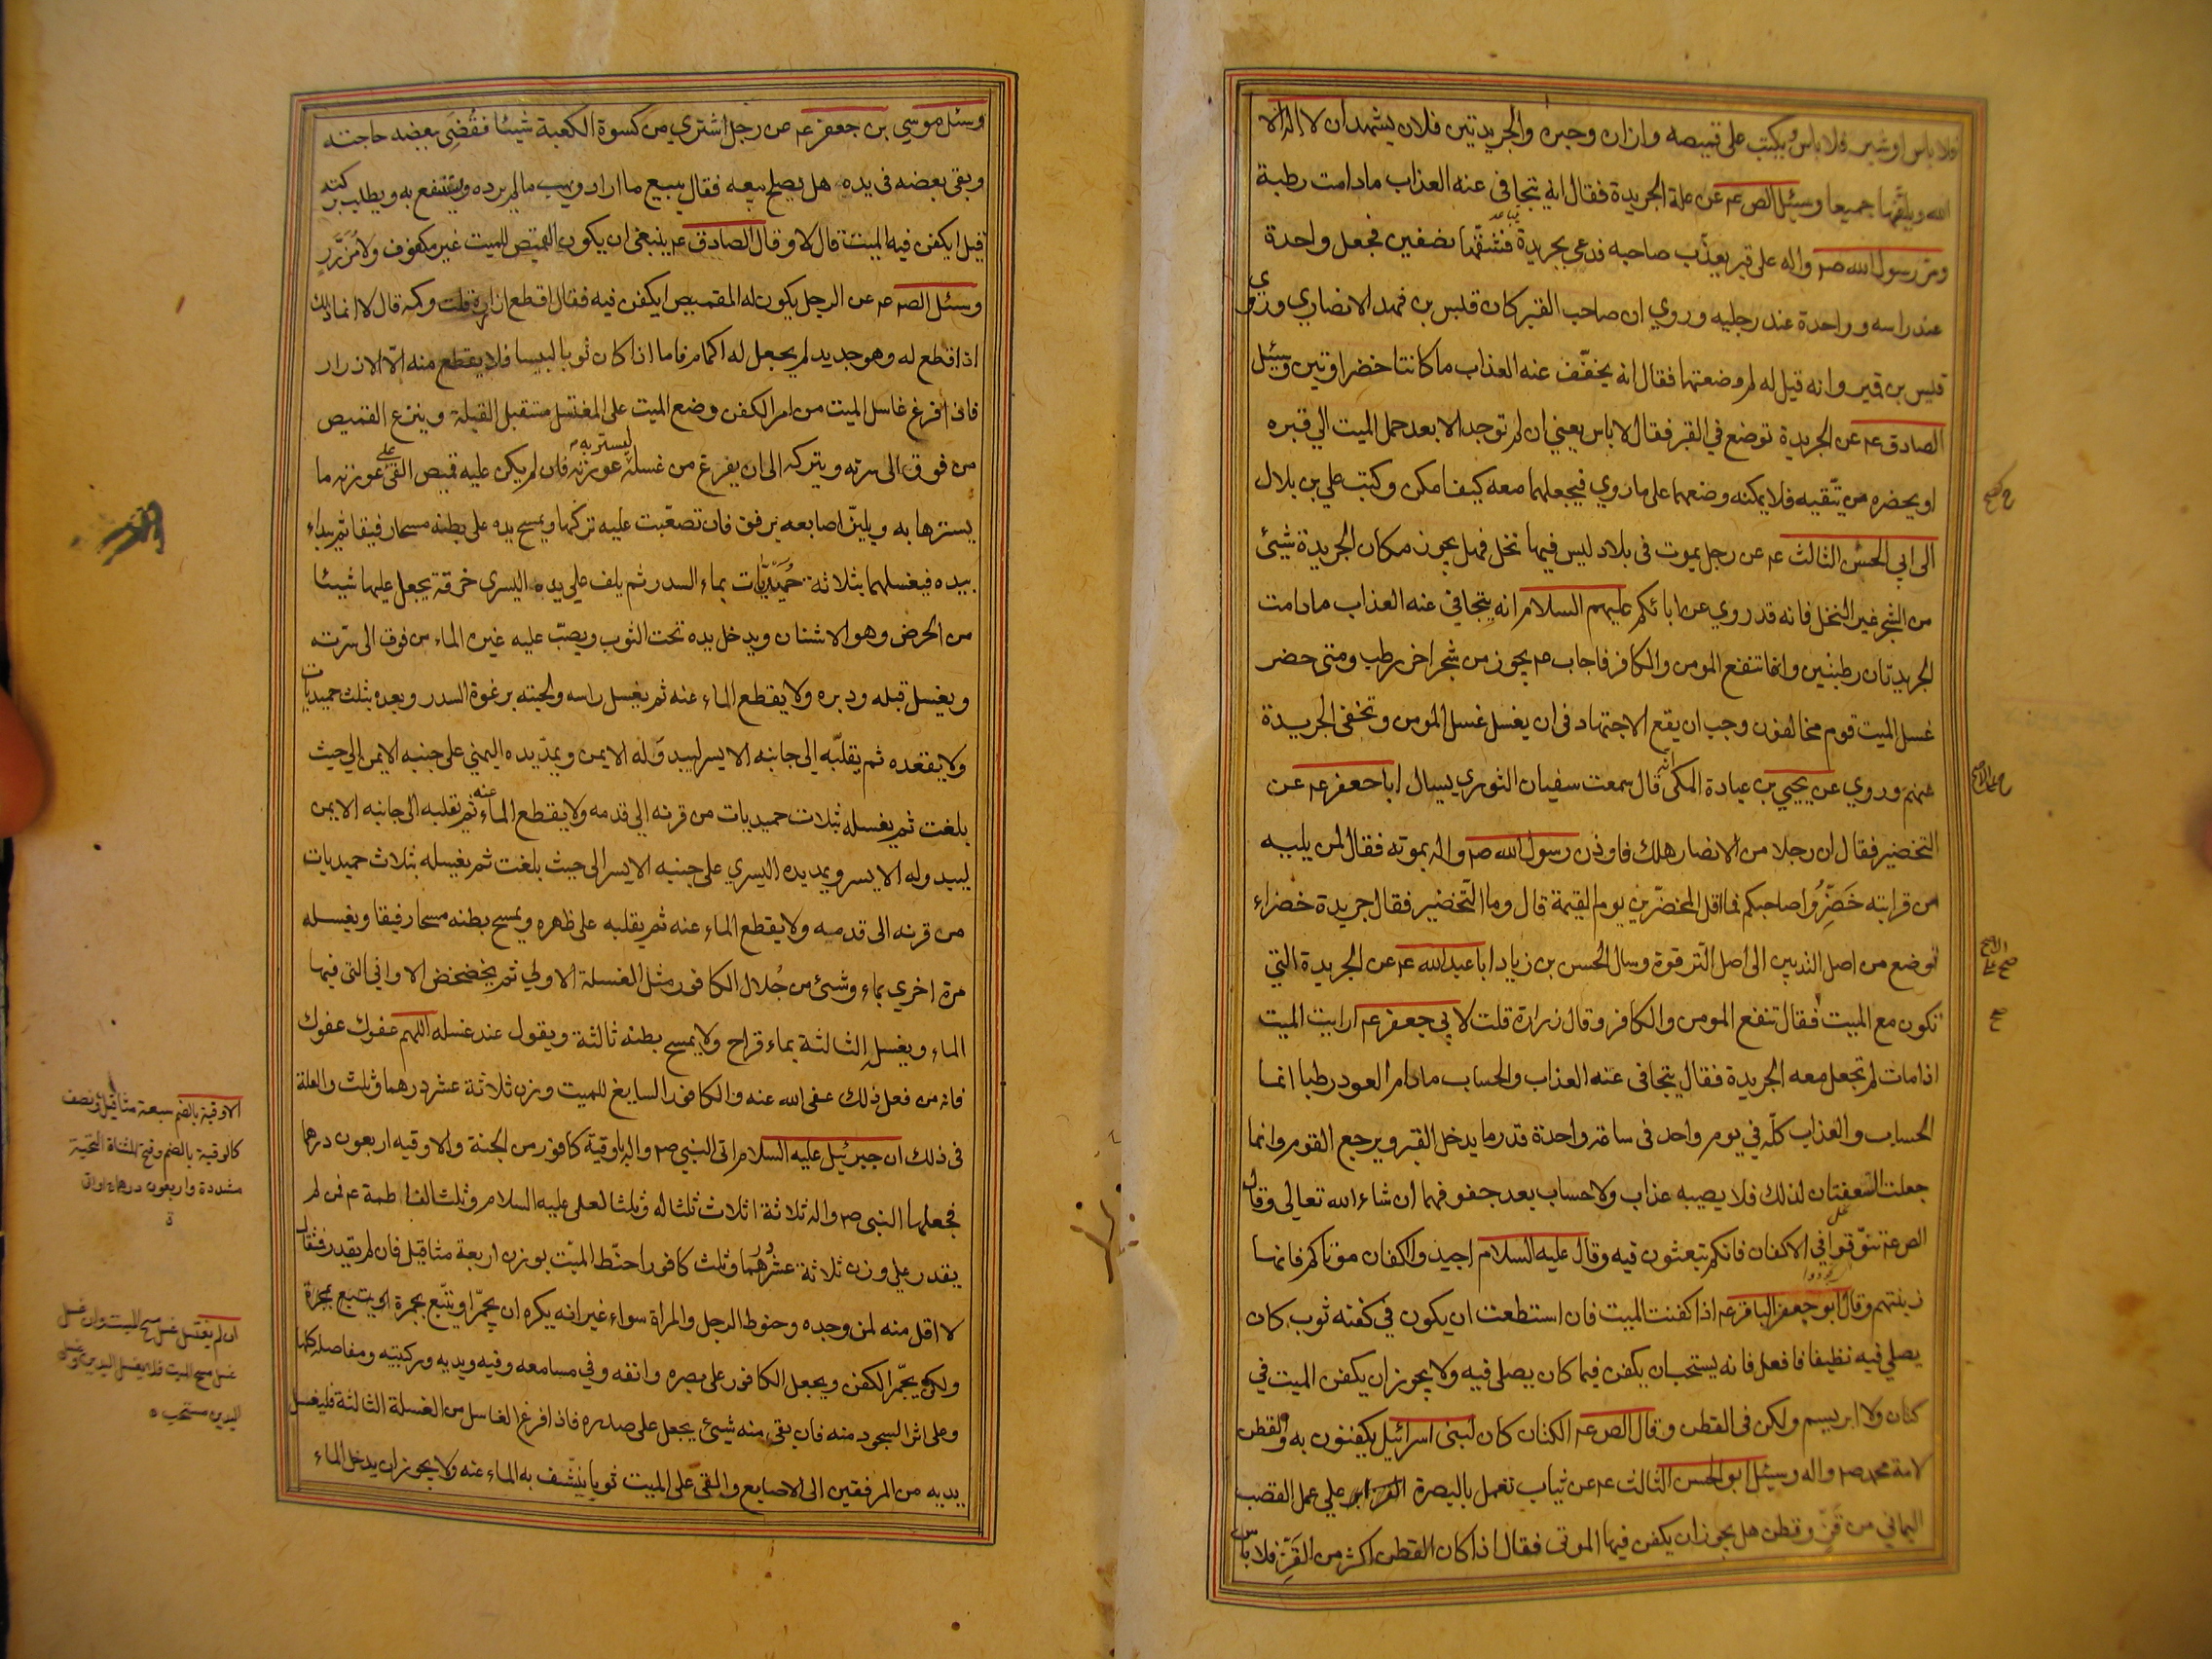 فلا باس او شبر فلا باس ويكتب على قميصه وازاره وحبره والجريدتين فلان يشهد ان لا اله الا
الله ويلفها جميعا وسئل الص عم عن علة الجريدة فقال انه يتجافى عنه العذاب ما دامت رطبة
ومر رسول الله صم واله على قبر يعذب صاحبه فدعى بجريدة فشقها نصفين فجعل واحدة
عند راسه وواحدة عند رجليه وروي ان صاحب القبر كان قيس بن فهد الانصاري وروي
قيس بن قمير وانه قيل له لم وضعتها فقال انه يخفف عنه العذاب ما كانتا خضراوتين وسئل
الصادق عم عن الجريدة توضع في القبر فقال لا باس يعني ان لم توجد الا بعد حمل الميت الي قبره
او يحضره من يتقيه فلا يمكنه وضعهما على ما روي فيجعلهما معه كيف امكن وكتب علي بن بلال
الى ابي الحسن الثالث عم عن رجل يموت في بلاد ليس فيها نخل فهل يجوز مكان الجريدة شيئ
من الشجر غير النخل فانه قد روي عن ابائكم عليهم السلام انه يتجافى عنه العذاب ما دامت
الجريدتان رطبتين وانها تنفع المومن والكافر فاجاب عم يجوز من شجر اخر رطب ومتى حضر
غسل الميت قوم مخالفون وجب ان يقع الاجتهاد في ان يغسل غسل المومن وتخفى الجريدة
عنهم وروي عن يحيي بن عبادة المكى انه قال سمعت سفيان الثوري يسال ابا جعفر عم عن
التخضير فقال ان رجلا من الانصار هلك فاوذن رسول الله صم واله بموته فقال لمن يليه
من قرابته خَضِّرُوا صاحبكم فما اقل المخضرين يوم القيمة قال وما التخضير فقال جريدة خضراء
توضع من اصل الثديين الى اصل الترقوة وسال الحسن بن زياد ابا عبد الله عم عن الجريدة التي
تكون مع الميت فقال تنفع المومن والكافر وقال زرارة قلت لابي جعفر عم ارايت الميت
اذا مات لم تجعل معه الجريدة فقال يتجافى عنه العذاب والحساب ما دام العود رطبا انما
الحساب والعذاب كله في يوم واحد في ساعة واحدة قدر ما يدخل القبر ويرجع القوم وانما
جعلت السعفتان لذلك فلا يصيبه عذاب ولا حساب بعد جفوفهما ان شاء الله تعالى وقال
الص عم تنوقوا في الاكفان فانكم تبعثون فيه وقال عليه السلام اجيدوا اكفان موتاكم فانها
زينتهم وقال ابو جعفر الباقر عم اذا كفنت الميت فان استطعت ان يكون في كفنه ثوب كان
يصلي فيه نظيفا فافعل فانه يستحب ان يكفن فيما كان يصلى فيه ولا يجوز ان يكفن الميت في
كتان ولا ابريسم ولكن في القطن وقال الص عم الكتان كان لبني اسرائيل يكفنون به والقطن
لامة محمد صم واله وسئل ابو الحسن الثالث عم عن ثياب تعمل بالبصرة علي عمل القصب
اليماني من قز وقطن هل يجوز ان يكفن فيها الموتى فقال اذا كان القطن اكثر من القَزّ فلا باس
وسئل موسي بن جعفر عم عن رجل اشتري من كسوة الكعبة شيئا فقُضِى ببعضه حاجته
وبقى بعضه في يده هل يصلح بيعه فقال يبيع ما اراد ويهب ما لم يرده ويستنفع به ويطلب بركته
قيل ايكفن فيه الميت قال لا وقال الصادق عم ينبغي ان يكون القميص للميت غير مكفوف ولا مُزَرَّرٍ
وسئل الص عم عن الرجل يكون له القميص ايكفن فيه فقال اقطع ازراره قلت وكمه قال لا انما ذلك
اذا قطع له وهو جديد لم يجعل له اكمام فاما اذا كان ثوبا لبيسا فلا يقطع منه الا الازرار
فاذا فرغ غاسل الميت من امر الكفن وضع الميت على المغتسل مستقبل القبلة وينزع القميص
من فوق الى سرته ويتركه الى ان يفرغ من غسله ليستر به عورته فان لم يكن عليه قميص القى على عورته ما
يسترها به ويلين اصابعه برفق فان تصعبت عليه تركها ويمسح يده على بطنه مسحا رفيقا ثم يبداء
بيده فيغسلهما بثلاثة حميديات بماء السدر ثم يلف على يده اليسرى خرقة يجعل عليها شيئا
من الحرض وهو الاشنان ويدخل يده تحت الثوب ويصب عليه غيره الماء من فوق الى سرته
ويغسل قبله ودبره ولا يقطع الماء عنه ثم يغسل راسه ولحيته برغوة السدر وبعده بثلث حميديات
ولا يقعده ثم يقلبه الي جانبه الايسر ليبدو له الايمن ويمد يده اليمني على جنبه الايمن الي حيث
بلغت ثم يغسله بثلاث حميديات من قرنه الي قدمه ولا يقطع الماء عنه ثم يقلبه الى جانبه الايمن
ليبدو له الايسر ويمد يده اليسري على جنبه الايسر الى حيث بلغت ثم يغسله بثلاث حميديات
من قرنه الى قدميه ولا يقطع الماء عنه ثم يقلبه على ظهره ويمسح بطنه مسحا رفيقا ويغسله
مرة اخري بماء وشيئ من جُلال الكافور مثل الغسلة الاولي ثم يخضخض الاواني التي فيها
الماء ويغسل الثالثة بماء قراح ولا يمسح بطنه ثالثة ويقول عند غسله اللهم عفوك عفوك
فانه من فعل ذلك عفى الله عنه والكافور السابغ للميت وزن ثلاثة عشر درهما وثلث والعلة
في ذلك ان جبرئيل عليه السلام اتى النبي صم واله باوقية كافور من الجنة والاوقيه اربعون درهما
فجعلها النبي صم واله ثلاثة اثلاث ثلثا له وثلثا لعلى عليه السلام وثلثا لفاطمة عم فمن لم
يقدر علي وزن ثلاثة عشر درهما وثلث كافورا حنط الميت بوزن اربعة مثاقيل فان لم يقدر فمثقال
لا اقل منه لمن وجده وحنوط الرجل والمراة سواء غير انه يكره ان يجمر او يتبع بمجمرة
ولكن يجمر الكفن ويجعل الكافور على بصره وانفه وفي مسامعه وفيه ويديه وركبتيه ومفاصله كلها
وعلى اثر السجود منه فان بقى منه شيئ يجعل على صدره فاذا فرغ الغاسل من الغسلة الثالثة فليغسل
يديه من المرفقين الى الاصابع والقى على الميت ثوبا ينشف به الماء عنه ولا يجوز ان يدخل الماء
الاوقية بالضم سبعة مثاقيل ونصف
كالوقية بالضم وفتح المثناة التحتية
مشددة واربعون درهما